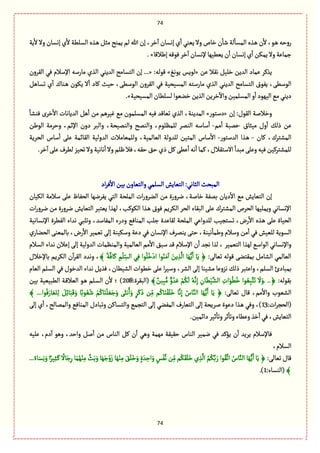 74
روحه هو ، لأن هذه المسألة شأن خاص ولا يعني أي إنسان آخر ، إن الله لم يمنح مثل هذه السلطة لأي إنسان ولا لأية
جماعة ولا يمكن أي إنسان أن يعطيها لإنسان آخر فوقه إطلاقا» .
يذكر عماد الدين خليل نقلا عن «لويس يونغ» قوله: «... إن التسامح الديني الذي مارسه الإسلام في القرون
الوسطى ، يفوق التسامح الذي مارسته المسيحية في القرون الوسطى ، حيث كاد ألا يكون هناك أي تساهل
ديني مع اليهود أو المسلمين والآخرين الذين خضعوا لسلطان المسيحية».
وخلاصة القول: إن «دستور» المدينة ، الذي تعاقد فيه المسلمون مع غيرهم من أهل الديانات الأخرى فنشأ
عن ذلك أول ميثاق عصبة أمم- أساسه النصر للمظلوم ، والنصح والنصيحة ، والبر دون الإثم ، وحرمة الوطن
المشترك، كان - هذا الدستور- الأساس المتين للدولة العالمية ، وللمعاملات الدولية القائمة على أساس الحرية
للمشتركين فيه وعلى مبدأ الاستقلال ، كما أنه أعطى كل ذي حق حقه ، فلا ظلم ولا أنانية ولا تحيز لطرف على آخر.
المبحث الثاني: التعايش السلمي والتعاون بين الأفراد
إن التعايش مع الأديان بصفة خاصة ، ضرورة من الضرورات الملحة التي يفرضها الحفاظ على سلامة الكيان
الإنساني ويمليها الحرص المشترك على البقاء الحر الكريم فوق هذا الكوكب ، لهذا يعتبر التعايش ضرورة من ضرورات
الحياة على هذه الأرض ، تستجيب للدواعي الملحة لقاعدة جلب المنافع ودرء المفاسد ، وتلبي نداء الفطرة الإنسانية
السوية للعيش في أمن وسلام وطمأنينة ، حتى ينصرف الإنسان في دعة وسكينة إلى تعمير الأرض ، بالمعنى الحضاري
والإنساني الواسع لهذا التعمير ، لذا نجد أن الإسلام قد سبق الأمم العالمية والمنظمات الدولية إلى إعلان نداء السلام
العالمي الشامل بمقتضى قوله تعالى: ﴿ يَا أَيُّهَا الَّذِينَ آمَنُوا ادْخُلُوا فِي السِّلْمِ كَافَّةً ﴾ ، وندد القرآن الكريم بالإخلال
بمبادئ السلم ، واعتبر ذلك نزوعا مشينا إلى الشر ، وسيرا على خطوات الشيطان ، فذيل نداء الدخول في السلم العام
بقوله: ﴿... وَلَا تَتَّبِعُوا خُطُوَاتِ الشَّيْطَانِ إِنَّهُ لَكُمْ عَدُوٌّ مُّبِينٌ ﴾ (البقرة: 208) ؛ لأن السلم هو العلاقة الطبيعية بين
الشعوب والأمم ، قال تعالى: ﴿ يَا أَيُّهَا النَّاسُ إِنَّا خَلَقْنَاكُم مِّن ذَكَرٍ وَأُنثَى وَجَعَلْنَاكُمْ شُعُوبًا وَقَبَائِلَ لِتَعَارَفُوا...﴾
(الحجرات: 13) ، وفي هذا دعوة صريحة إلى التعارف المفضي إلى التجمع والتساكن وتبادل المنافع والمصالح ، أي إلى
التعايش ، في أخذ وعطاء وتأثر وتأثير دائمين.
فالإسلام يريد أن يؤكد في ضمير الناس حقيقة مهمة وهي أن كل الناس من أصل واحد ، وهو آدم ، عليه
السلام ،
قال تعالى: ﴿ يَا أَيُّهَا النَّاسُ اتَّقُوا رَبَّكُمُ الَّذِي خَلَقَكُم مِّن نَّفْسٍ وَاحِدَةٍ وَخَلَقَ مِنْهَا زَوْجَهَا وَبَثَّ مِنْهُمَا رِجَالًا كَثِيرًا وَنِسَاءً...
﴾ (النساء:1).
74